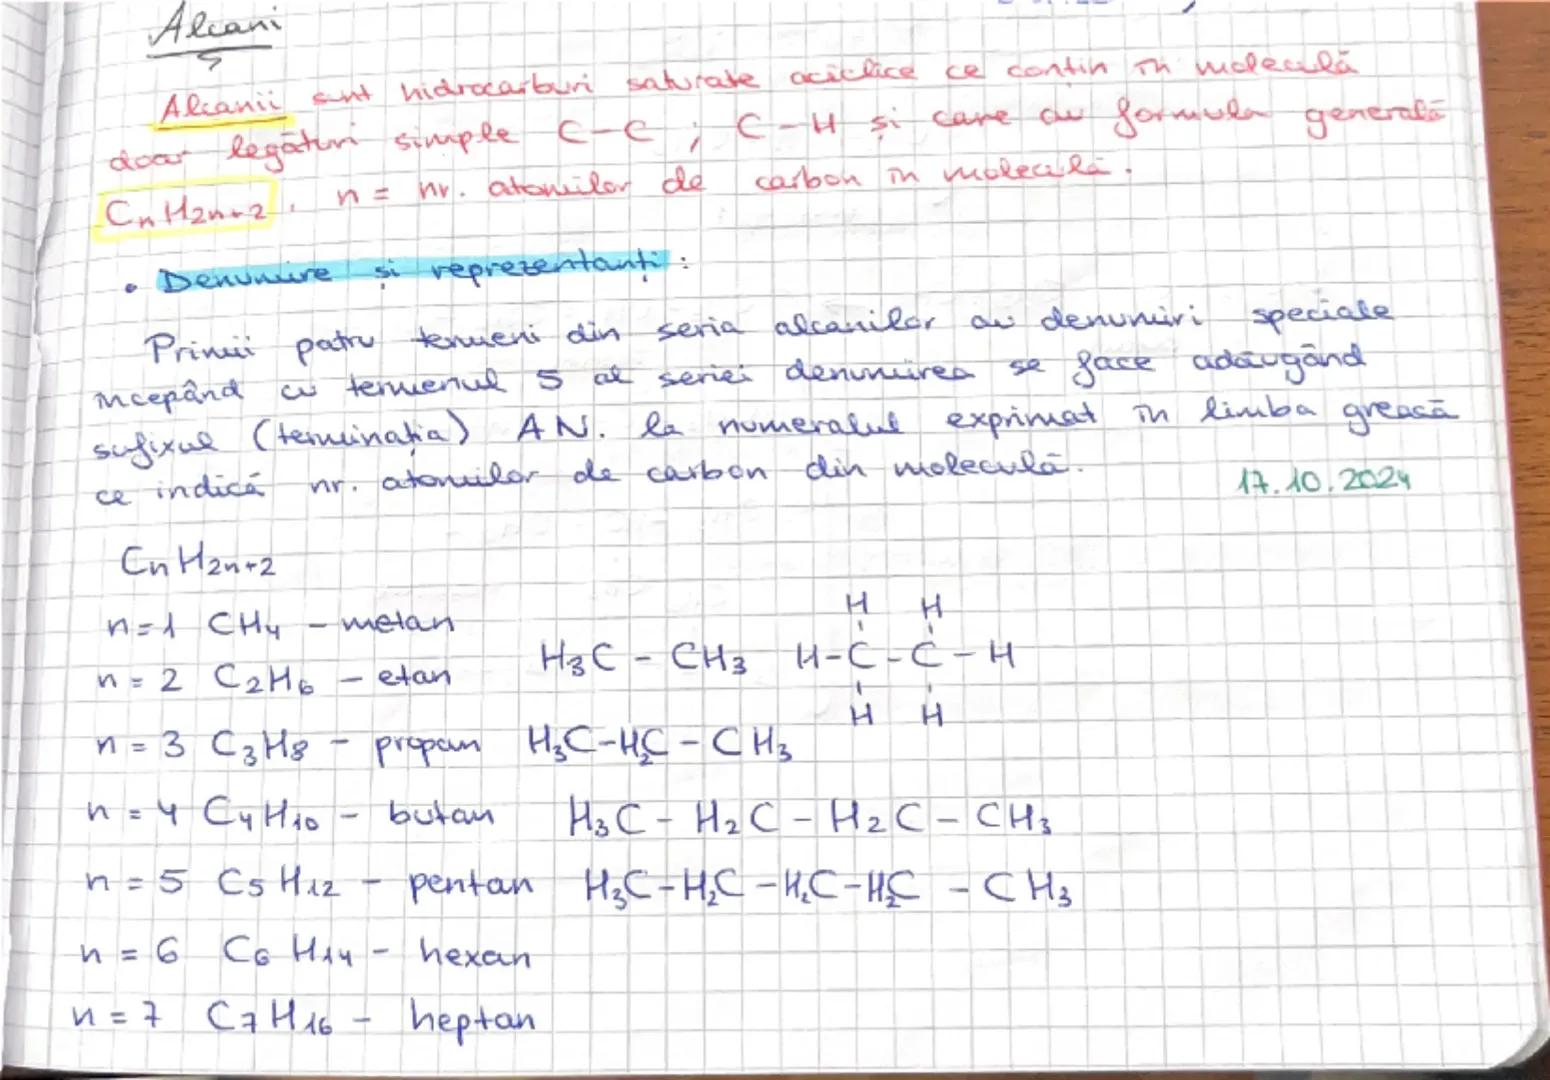 Alcani
Alcanii sunt hidrocarburi saturate aciclice ce conțin în moleculă
doar legături simple C-C ; C-H și care au formula generală
CnH2n+2, n = nr. atomilor de carbon în moleculă.
• Denumire și reprezentanți:
Primii patru termeni din seria alcanilor au denumiri speciale
începând cu termenul 5 al seriei denumirea se face adăugând
sufixul (terminația) AN. la numeralul exprimat în limba greacă
ce indică nr. atomilor de carbon din moleculă.
17.10.2024
CnH2n+2
H H
n=1 CH4 - metan
H3C - CH3 H-C-C-H
n=2 C2H6 - etan
H H
n=3 C3H8 - propan H3C-H2C-CH3
n=4 C4H10 - butan H3C-H2C-H2C-CH3
n=5 C5H12 - pentan H3C-H2C-H2C-H2C-CH3
n=6 C6H14 - hexan
n=7 C7H16 - heptan